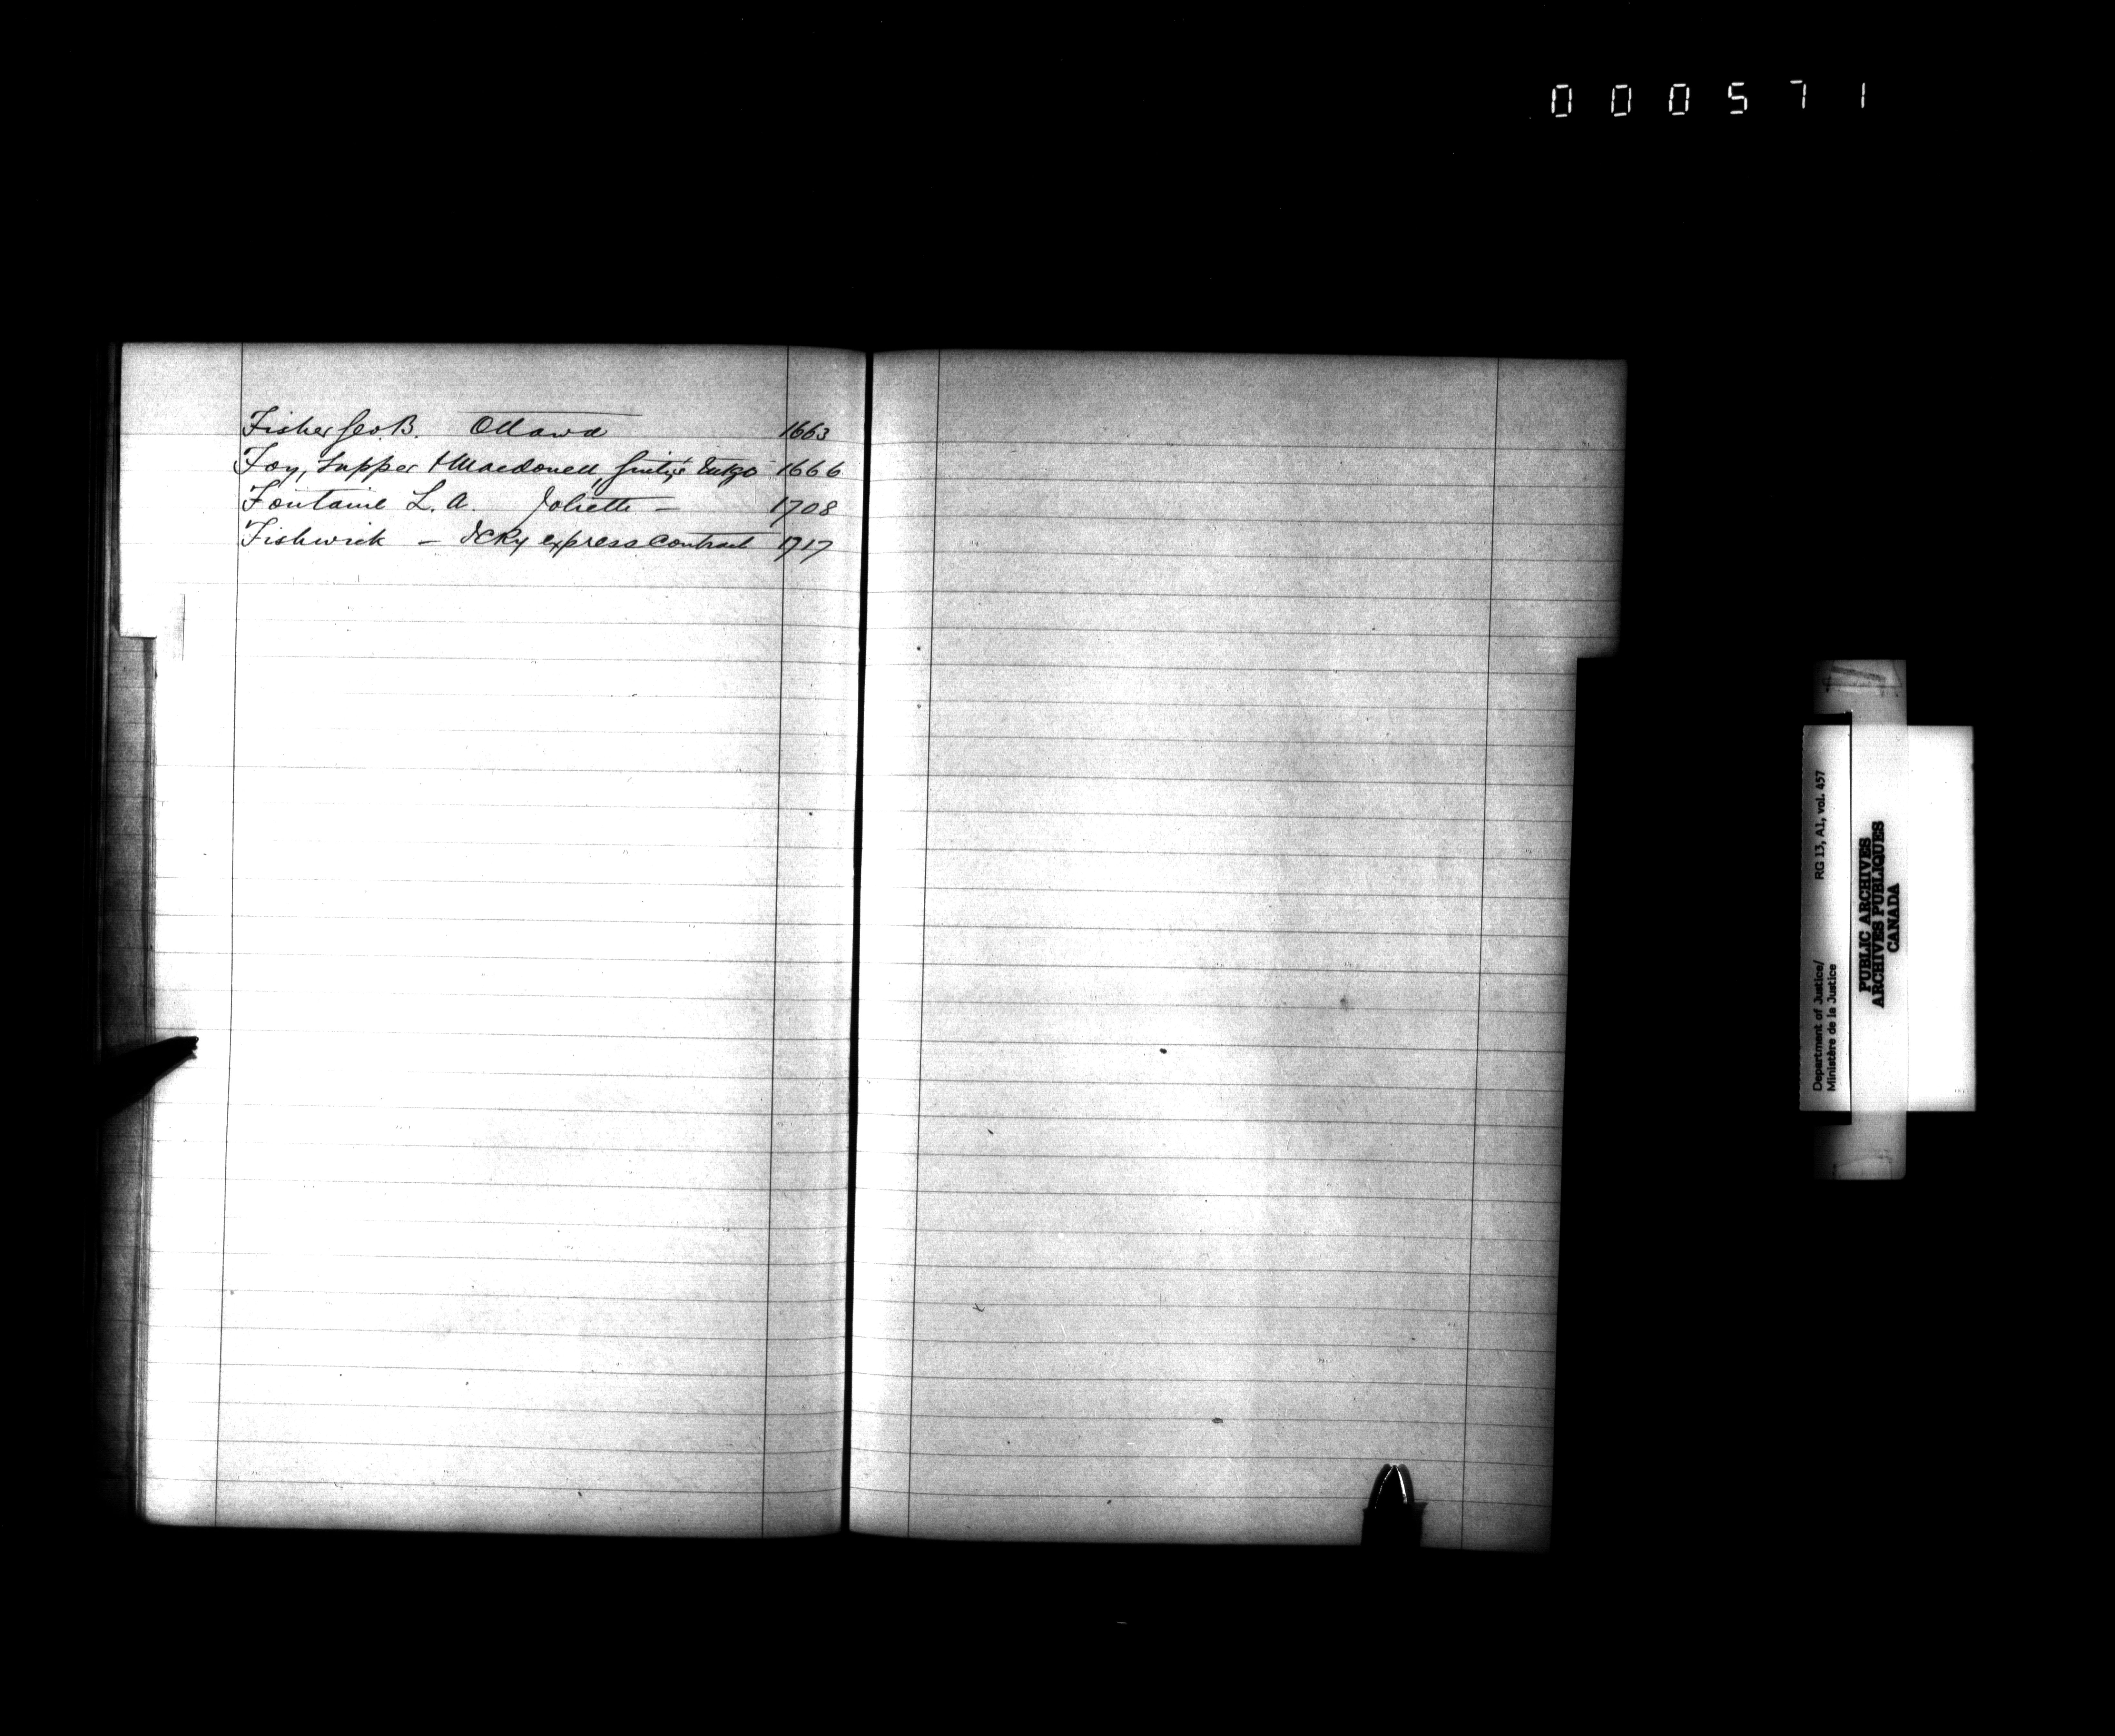 000571
Fisher Geo B. Ottawa 1663
Foy, Tupper & Macdonell, 1666
Fontaine L. A. Joliette — 1708
Fishwick — ICRy express contract 1717
Department of Justice/ RG 13, A1, vol. 457
Ministère de la Justice
PUBLIC ARCHIVES
ARCHIVES PUBLIQUES
CANADA